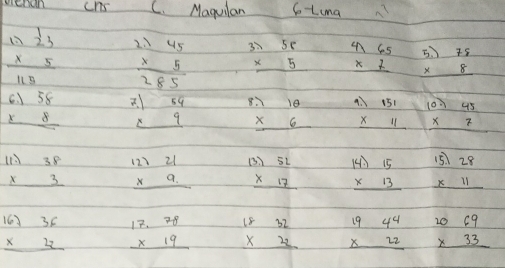 Chs C. Maquilan 6-Luna
1.) 23 2.) 45 3) 58 4) 65 5.) 78
x 5 x 5 x 5 x 7 x 8
115 285
6.) 58 7.) 59 8.) 18 9.) 151 10.) 45
x 8 x 9 x 6 x 11 x 7
11) 38 12) 21 13) 52 14) 15 15) 28
x 3 x 9 x 17 x 13 x 11
16) 36 17. 78 18 32 19 44 20 69
x 22 x 19 x 22 x 22 x 33